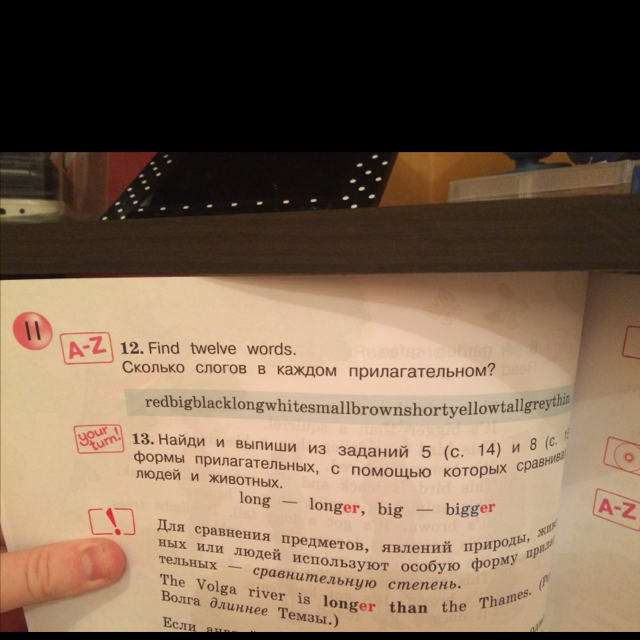 II
A-Z
12. Find twelve words.
Сколько слогов в каждом прилагательном?
redbigblacklongwhitesmallbrownshortyellowtallgreythin
your turn!
13. Найди и выпиши из заданий 5 (с. 14) и 8 (с.
формы прилагательных, с помощью которых
людей и животных.
long — longer, big — bigger
!
Для сравнения предметов, явлений природы,
ных или людей используют особую форму
тельных — сравнительную степень.
The Volga river is longer than the Thames.
Волга длиннее Темзы.)
Если
A-Z